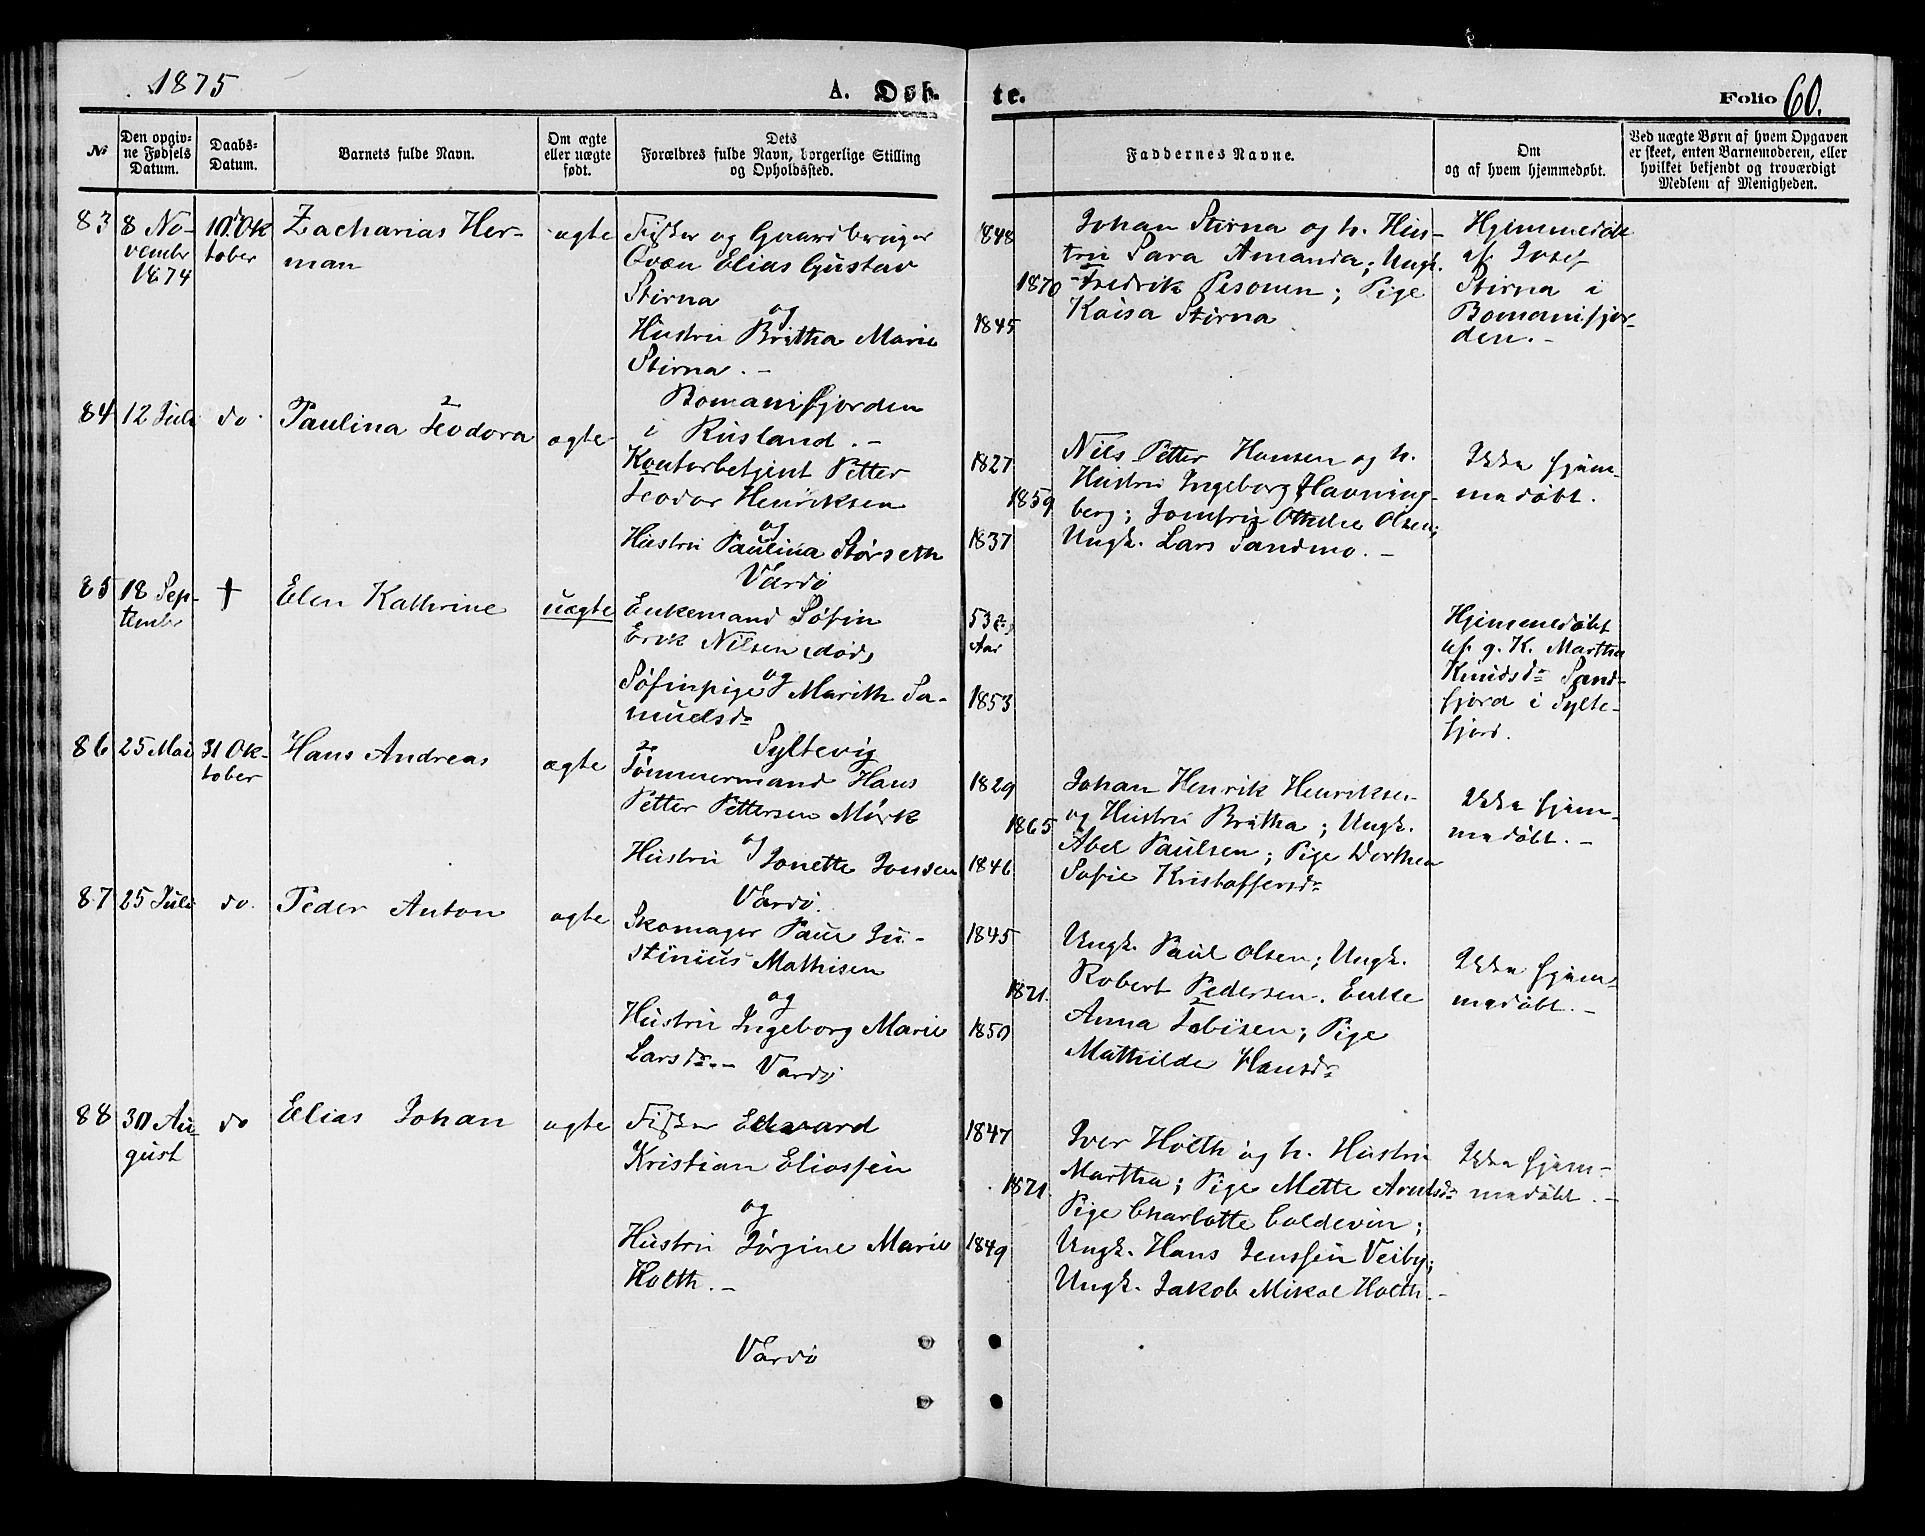 1875
A. Døb-
te.
Folio 60.
No
Den opgiv-
ne Fødsels
Datum.
Daabs-
Datum.
Barnets fulde Navn.
Om ægte
eller uægte
født.
Dets
Forældres fulde Navn, borgerlige Stilling
og Opholdssted.
Faddernes Navne.
Om
og af hvem hjemmedøbt.
Ved uægte Børn af hvem Opgaven
er skeet, enten Barnemoderen, eller
hvilket bekjendt og troværdigt
Medlem af Menigheden.
83
8 No-
vembr
1874
10 Ok
tober
Zacharias Her-
man
ægte
Fisker og Gaardbruger
Qvæn Elias Gustav
Stirna
og
Hustru Britha Marie
Stirna. -
Bomanifjorden
i Rusland. -
1848
1870
1845
Johan Stirna og h. Hus-
tru Sara Amanda; Ungk.
Fredrik Pesonen; Pige
Kaisa Stirna
Hjemmedøbt
af Josef
Stirna i
Bomanifjor-
den. -
84
12 Juli
do.
Paulina Teodora
ægte
Kontorbetjent Petter
Teodor Henriksen
og
Hustru Paulina Størseth
Vardø
1827
1859
1837
Nils Petter Hansen og h.
Hustru Ingeborg Havning-
berg; Jomfru Olsen;
Ungk. Lars Sandmo. -
Ikke hjem-
medøbt.
85
18 Sep-
tember
†
Elen Kathrine
uægte
Enkemand Søfin
Erik Nilsen (død)
og
Søfinpige Marith Sa-
muelsdr
Syltevig
53
Aar
1853
Hjemmedøbt
af g. K. Martha
Knudsdr Sand-
fjord i Sylte-
fjord.
86
25 Mai
31 Ok-
tober
Hans Andreas
ægte
Tømmermand Hans
Petter Pettersen Mørk
og
Hustru Jonette Jonsen
Vardø.
1829
1865
1846
Johan Henrik Henriksen
og Hustru Britha; Ungk.
Abel Paulsen; Pige Dorthea
Sofie Kristoffersdr
Ikke hjem-
medøbt. -
87
25 Juli
do.
Peder Anton
ægte
Skomager Paul Ju-
stinius Mathisen
og
Hustru Ingeborg Marie
Larsdr. - Vardø
1845
1871.
1850
Ungk. Paul Olsen; Ungk.
Robert Pedersen. Enke
Anna Tobisen; Pige
Mathilde Hansdr
Ikke hjem-
medøbt. -
88
30 Au-
gust
do
Elias Johan
ægte
Fisker Edvard
Kristian Eliassen
og
Hustru Jørgine Marie
Holth. -
Vardø
1847
1871.
1849
Iver Holth og h. Hustru
Martha; Pige Mette Arntsdr
Pige Charlotte Coldevin;
Ungk. Hans Jenssen Veiby;
Ungk. Jakob Mikal Holth. -
Ikke hjem-
medøbt. -